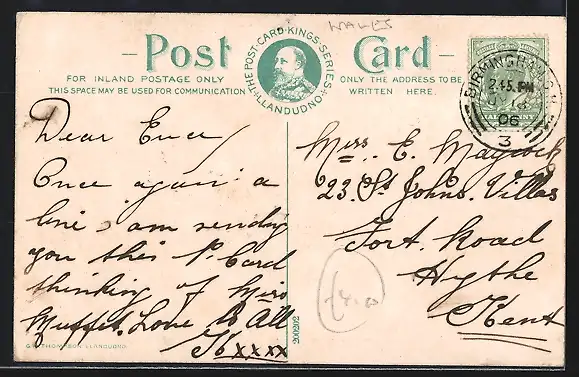 WALES
Post Card
THE POST CARD KING'S SERIES LLANDUDNO
FOR INLAND POSTAGE ONLY
THIS SPACE MAY BE USED FOR COMMUNICATION
ONLY THE ADDRESS TO BE
WRITTEN HERE.
BIRMINGHAM
2.45.PM
06
3
Dear
Once again a
line i am sending
you this P. Card
thinking of Miss
Muffet. Love to All
xxxx
G. THOMASON LLANDUDNO.
200202
Miss. E. Maycock
23. St Johns. Villas
Fort. Road
Hythe
Kent